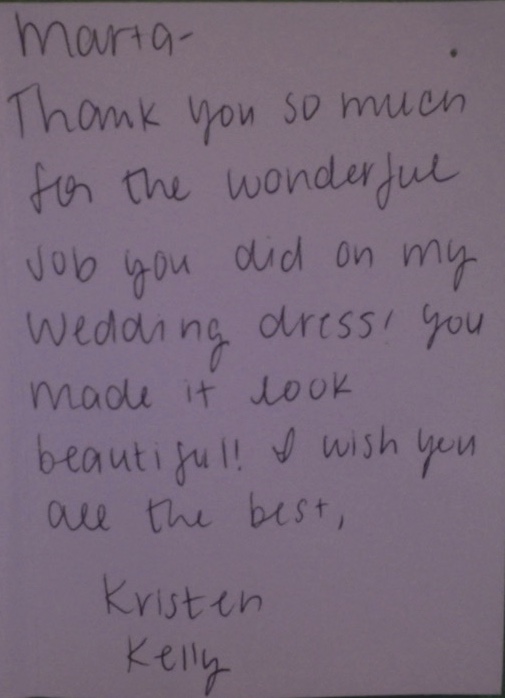 Marta-
Thank you so much
for the wonderful
job you did on my
wedding dress! you
made it look
beautiful! I wish you
all the best,
Kristen
Kelly